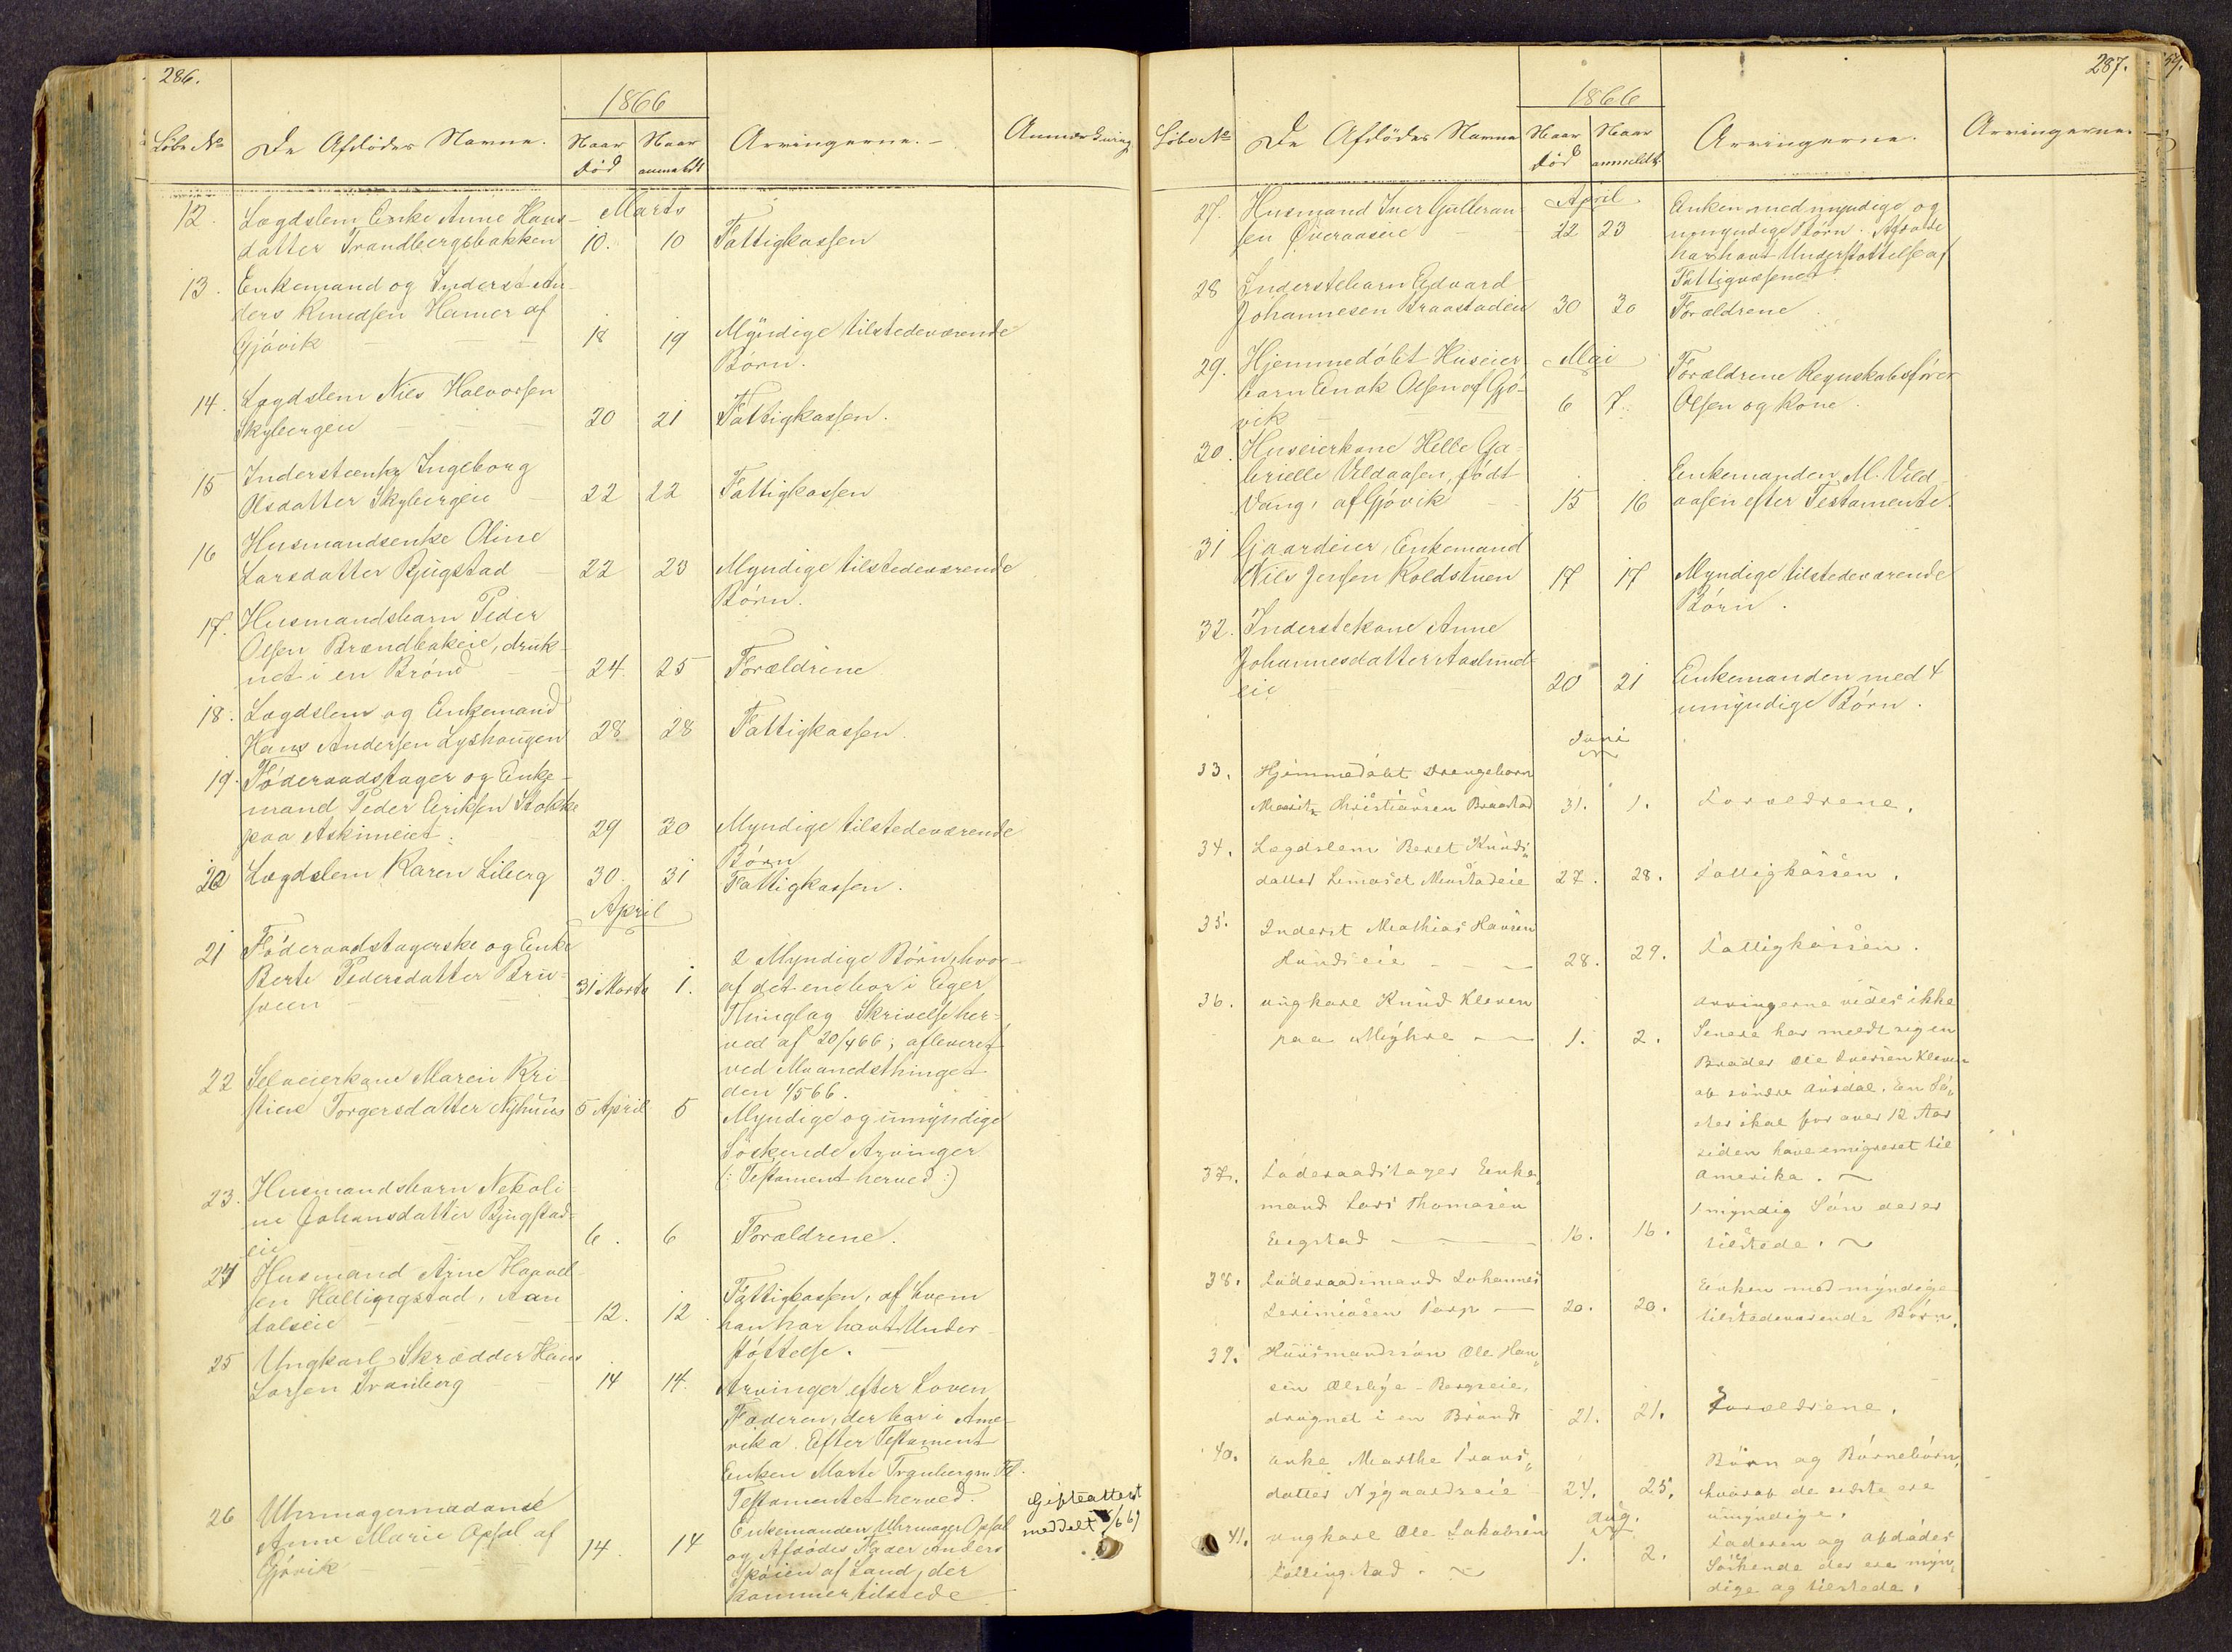 286.
1866
Löbe No
De Afdödes Navne.
Naar Död
Naar anmeldt
Arvingerne.
Anmærkning
Marts
12. Lægdslem Enke Anne Hans-
datter Trandbergsbakken 10. 10 Fattigkassen
13. Enkemand og Inderst An-
ders Knudsen Hamer af
Gjövik 18 19 Myndige tilstedeværende
Börn.
14. Lægdslem Niels Halvorsen
Skybergeie 20 21 Fattigkassen.
15 Inderstenke Ingeborg
Olsdatter Skybergeie 22 22 Fattigkassen
16 Husmandsenke Oline
Larsdatter Bjugstad 22 23 Myndige tilstedeværende
Börn.
17. Husmandsbarn Peder
Olsen Brændbakeie, druk-
net i en Brönd 24 25 Forældrene
18. Lægdslem og Enkemand
Hans Andersen Lyshaugen 28 28 Fattigkassen.
19. Föderaadstager og Enke-
mand Peder Eriksen Stokke
paa Askimeiet. 29 30 Myndige tilstedeværende
Börn
20 Lægdslem Karen Liberg 30. 31 Fattigkassen.
April
21 Föderaadstagerske og Enke
Berte Pedersdatter Bru-
sveen 31 Marts 1.
2 Myndige Börn, hvor-
af det ene bor i Eger
Thinglag Skrivelse her-
ved af 20/4 66; afleveret
ved Maanedsthinget
den 1/5 66.
22 Selveierkone Maren Kri-
stine Torgersdatter Nyhuus 5 April 5
Myndige og umyndige
Söskende Arvinger
(: Testament herved :)
23. Husmandsbarn Nekoli-
ne Johansdatter Bjugstad-
eie 6. 6 Forældrene.
24 Husmand Arne Haavel-
sen Hallingstad, Aan-
dalseie 12. 12.
Fattigkassen, af hvem
han har havt Under-
stöttelse.
25 Ungkarl Skrædder Hans
Larsen Tranberg 14 14.
Arvinger efter Loven
Faderen, der bor i Ame-
rika. Efter Testament
Enken Marte Tranbergm
Testamentet herved.
26 Uhrmagermadame
Anne Marie Opsal af
Gjövik 14. 14
Enkemanden Uhrmager Opsal
og Afdödes Fader Anders
af Land, der
kommer tilstede
Gifteattest
meddelt
287.
1866
Löbe No
De Afdödes Navne
Naar Död
Naar anmeldt
Arvingerne.
Arvingerne
April
27. Husmand Iver Gulleran-
sen Överaaseie 22 23
Enken med myndige og
umyndige Börn. Afdöde
har havt Understöttelse af
Fattigvæsenet
28 Inderstebarn Edvard
Johannesen Braastadeie 30 30 Forældrene
Mai
29. Hjemmedöbt Huseier-
barn Enok Olsen af Gjö-
vik 6 7.
Forældrene Regnskabsförer
Olsen og Kone.
30. Huseierkone Helle Ga-
brielle Veldaasen, födt
Vang, af Gjövik 15 16
Enkemanden M. Veld-
aasen efter Testamente.
31 Gaardeier, Enkemand
Nils Jensen Koldstuen 17 17 Myndige tilstedeværende
Börn.
32. Inderstekone Anne
Johannesdatter Aaslund-
eie 20 21 Enkemanden med 4
umyndige Börn.
Juni
33. Hjemmedöbt Drengebarn
Mauritz Christiansen Braastad 31. 1. Forældrene.
34. Lægdslem Beret Knuds
datter 27. 28. Fattigkassen.
35. Inderst Mathias Hansen
Hundseie 28. 29. Fattigkassen.
36. ungkarl Knud Kleven
paa Myhre 1. 2.
Arvingerne vides ikke
Senere har meldt sig en
Broder Ole Iversen Kleven
af söndre Aurdal. En Sö-
ster skal for over 12 Aar
siden have emigreret til
Amerika.
37. Föderaadstager Enke-
mand Lars Thomasen
Eegstad 16. 16.
1 myndig Sön der er
tilstede.
38. Föderaadsmand Johannes
Jeremiasen Torp 20. 20.
Enken med myndige
tilstedeværende Börn.
39. Huusmandssön Ole Han-
sen Ølslye-Bergseie,
drugnet i en Brönd 21. 21. Forældrene.
40. enke Marthe Frans-
datter Nygaardseie 24. 25.
Börn og Börnebörn,
hvoraf de sidste ere
umyndige.
Aug.
41. ungkarl Ole Jakobsen
Follingstad. 1. 2.
Faderen og Afdödes
Söskende der ere myn-
dige og tilstede.